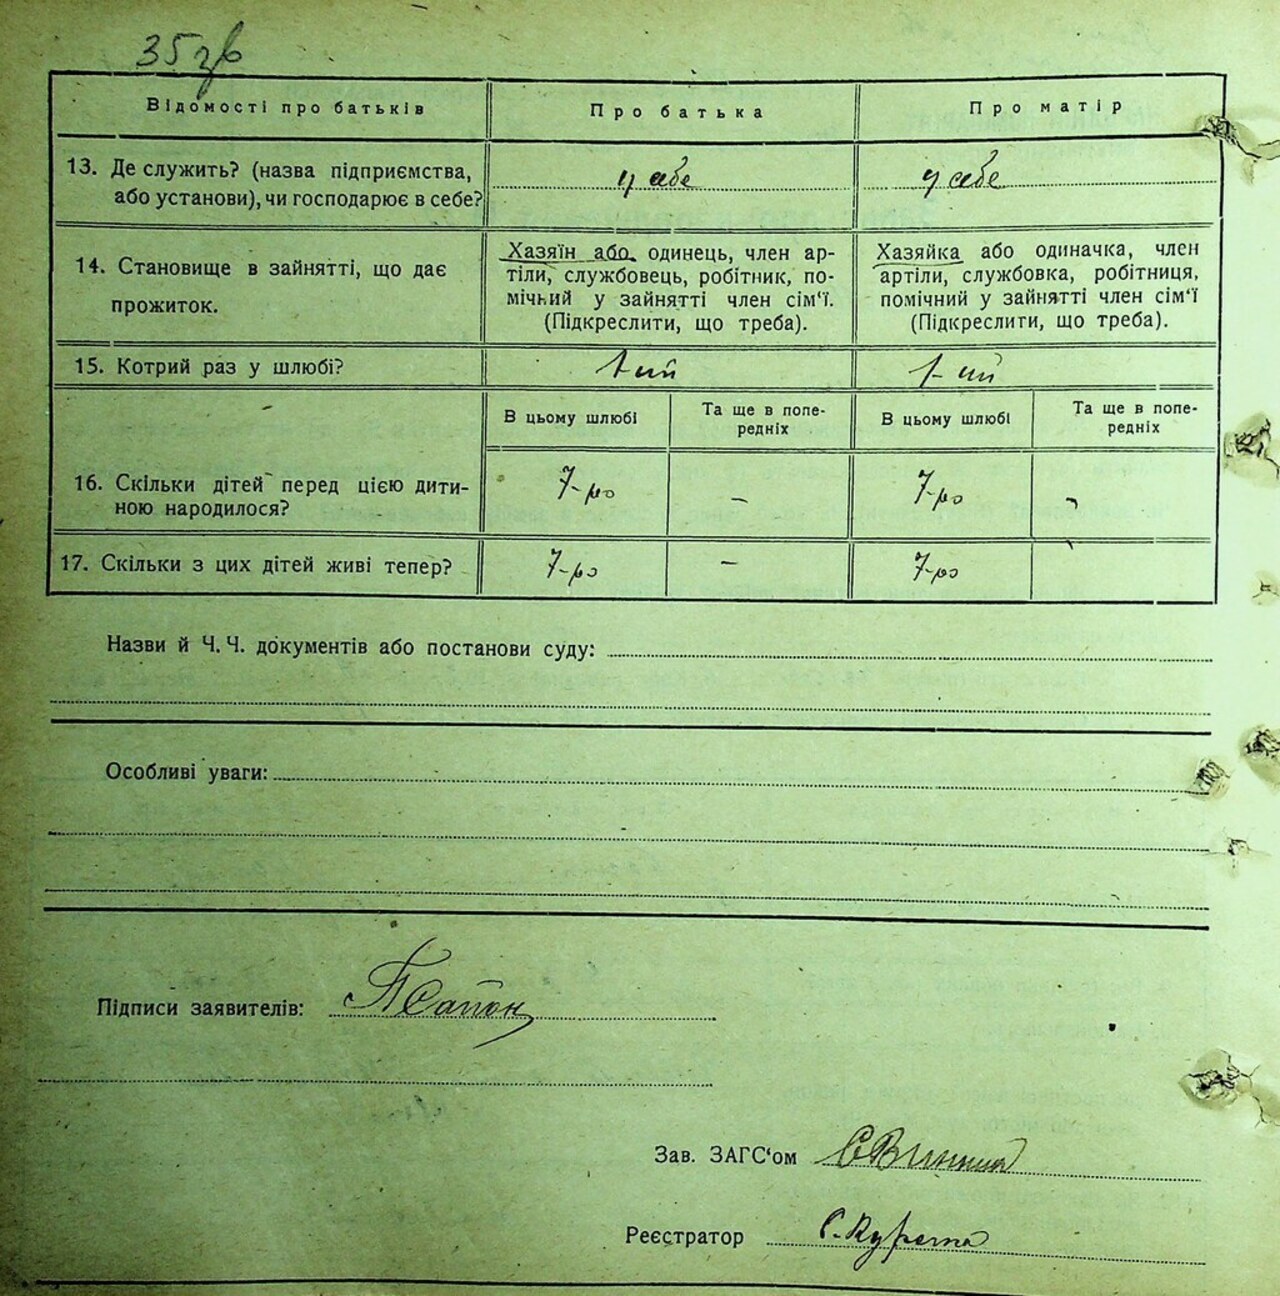 35 зв
Відомості про батьків
Про батька
Про матір
13. Де служить? (назва підприємства,
або установи), чи господарює в себе?
у себе
у себе
14. Становище в зайнятті, що дає
прожиток.
Хазяїн або одинець, член ар-
тіли, службовець, робітник, по-
мічний у зайнятті член сім‘ї.
(Підкреслити, що треба).
Хазяйка або одиначка, член
артіли, службовка, робітниця,
помічний у зайнятті член сім‘ї
(Підкреслити, що треба).
15. Котрий раз у шлюбі?
1-ий
1-ий
В цьому шлюбі
Та ще в попе-
редніх
В цьому шлюбі
Та ще в попе-
редніх
16. Скільки дітей перед цією дити-
ною народилося?
7-ро
-
7-ро
17. Скільки з цих дітей живі тепер?
7-ро
-
7-ро
Назви й Ч. Ч. документів або постанови суду:
Особливі уваги:
Підписи заявителів:
Зав. ЗАГС‘ом
Реєстратор